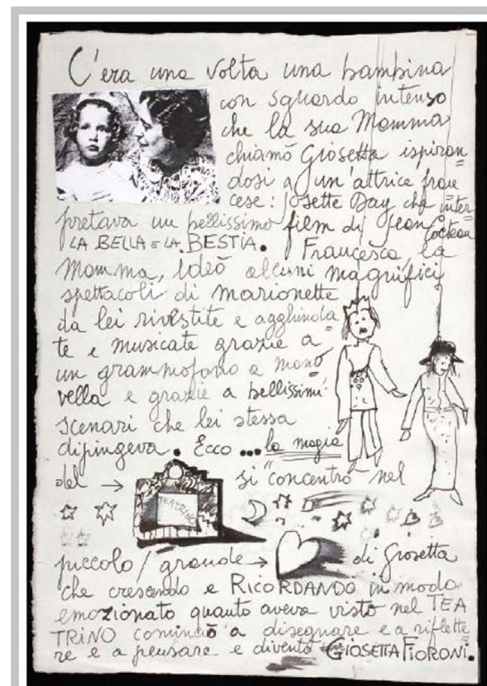 C'era una volta una bambina
con sguardo intenso
che la sua Mamma
chiamò Giosetta ispiran=
dosi a un'attrice fran
cese: Josette Day che inter=
pretava un bellissimo film di Jean Cocteau
LA BELLA E LA BESTIA. Francesca la
Mamma, ideò alcuni magnifici
spettacoli di marionette
da lei rivestite e agghinda
te e musicate grazie a=
un grammofono a mano=
vella e grazie a bellissimi
scenari che lei stessa
dipingeva. Ecco ... la magia
del → TEATRINO si concentrò nel
piccolo/grande → di Giosetta
che crescendo e RICORDANDO in modo
emozionato quanto aveva visto nel TEA
TRINO cominciò a disegnare e a riflette
re e a pensare e diventò GIOSETTA FIORONI.